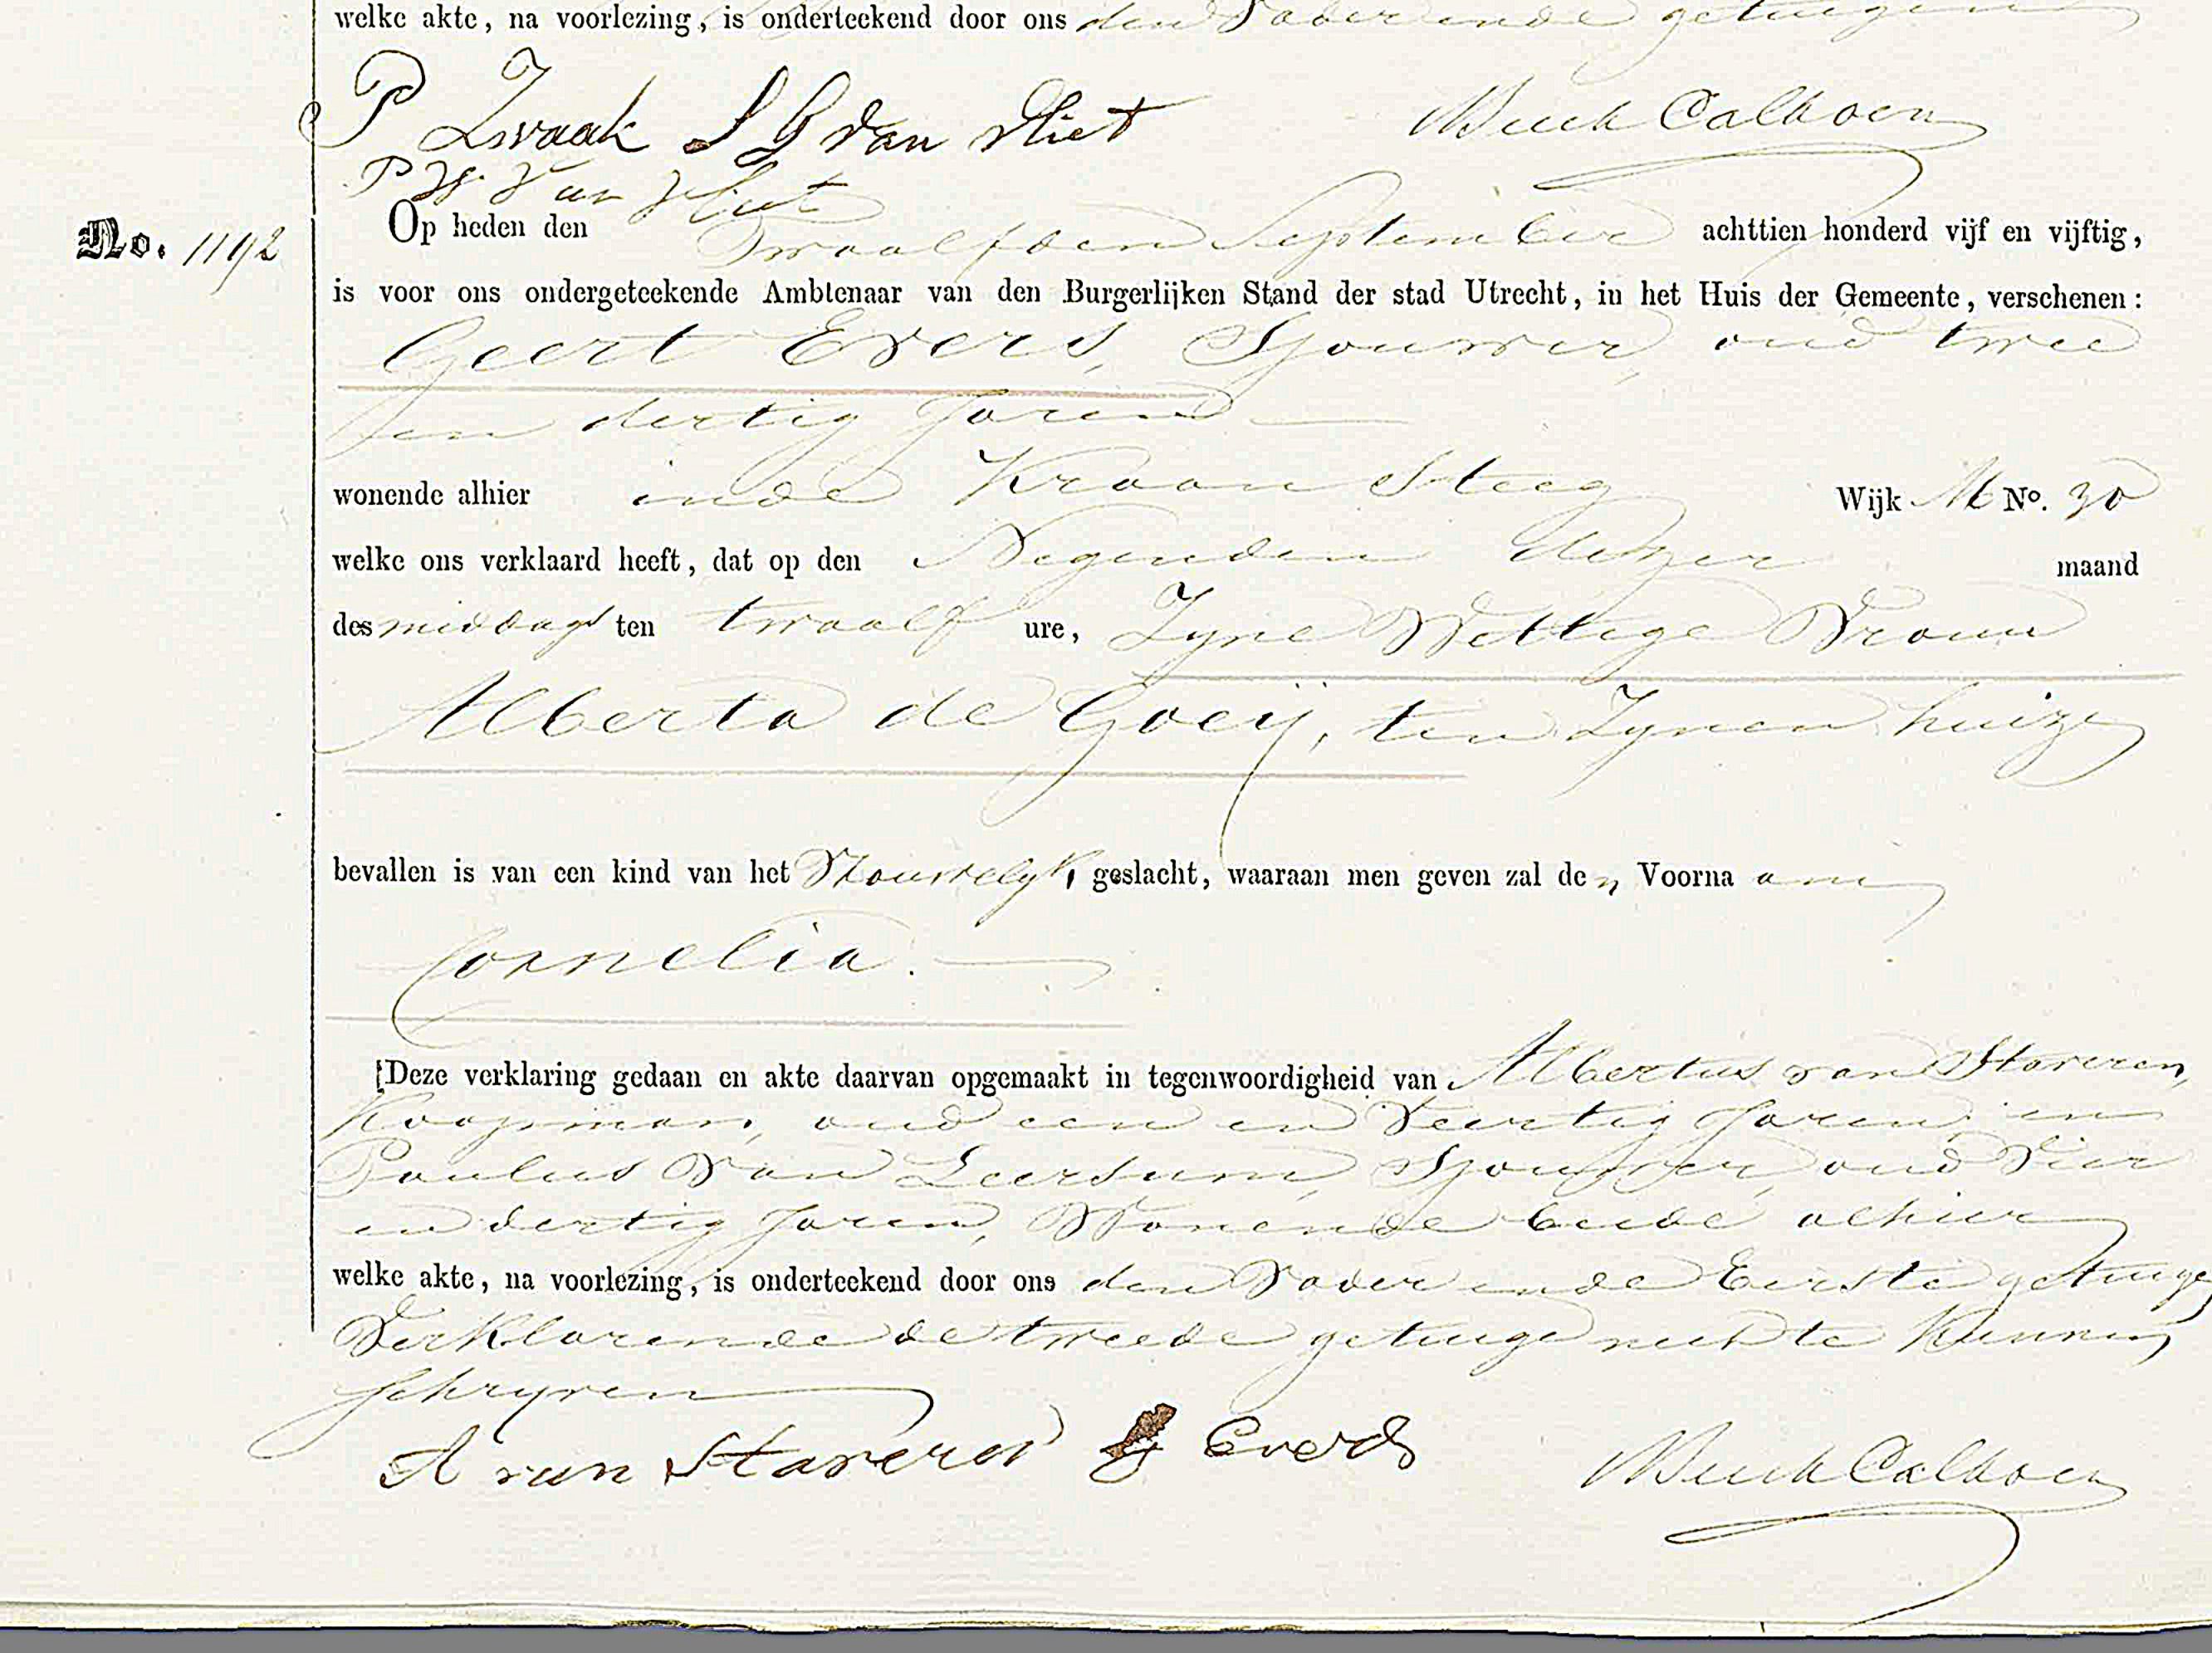 welke akte, na voorlezing, is onderteekend door ons den Vader ende getuigen
P Zwaak S G van Vliet
P W Van Vliet
No. 1192
Op heden den Twaalfden September achttien honderd vijf en vijftig,
is voor ons ondergeteekende Ambtenaar van den Burgerlijken Stand der stad Utrecht, in het Huis der Gemeente, verschenen:
Geert Evers, Sjouwer, oud twee
en dertig Jaren
wonende alhier inde Kroon Steeg Wijk M No. 30
welke ons verklaard heeft, dat op den Negenden dezer maand
des middags ten twaalf ure, Zyne Wettige Vrouw
Alberta de Goeij, ten Zynen huize
bevallen is van een kind van het Vrouwelyk geslacht, waaraan men geven zal den Voorna am
Cornelia.
Deze verklaring gedaan en akte daarvan opgemaakt in tegenwoordigheid van Albertus van Staveren,
Koopman, oud een en Veertig Jaren, en
Paulus Van Leersum, Sjouwer, oud Vier
en dertig Jaren, Wonende beide alhier
welke akte, na voorlezing, is onderteekend door ons den Vader ende Eerste getuige
Verklarende de tweede getuige niet te Kunnen
Schryven
A van Staveren G Evers